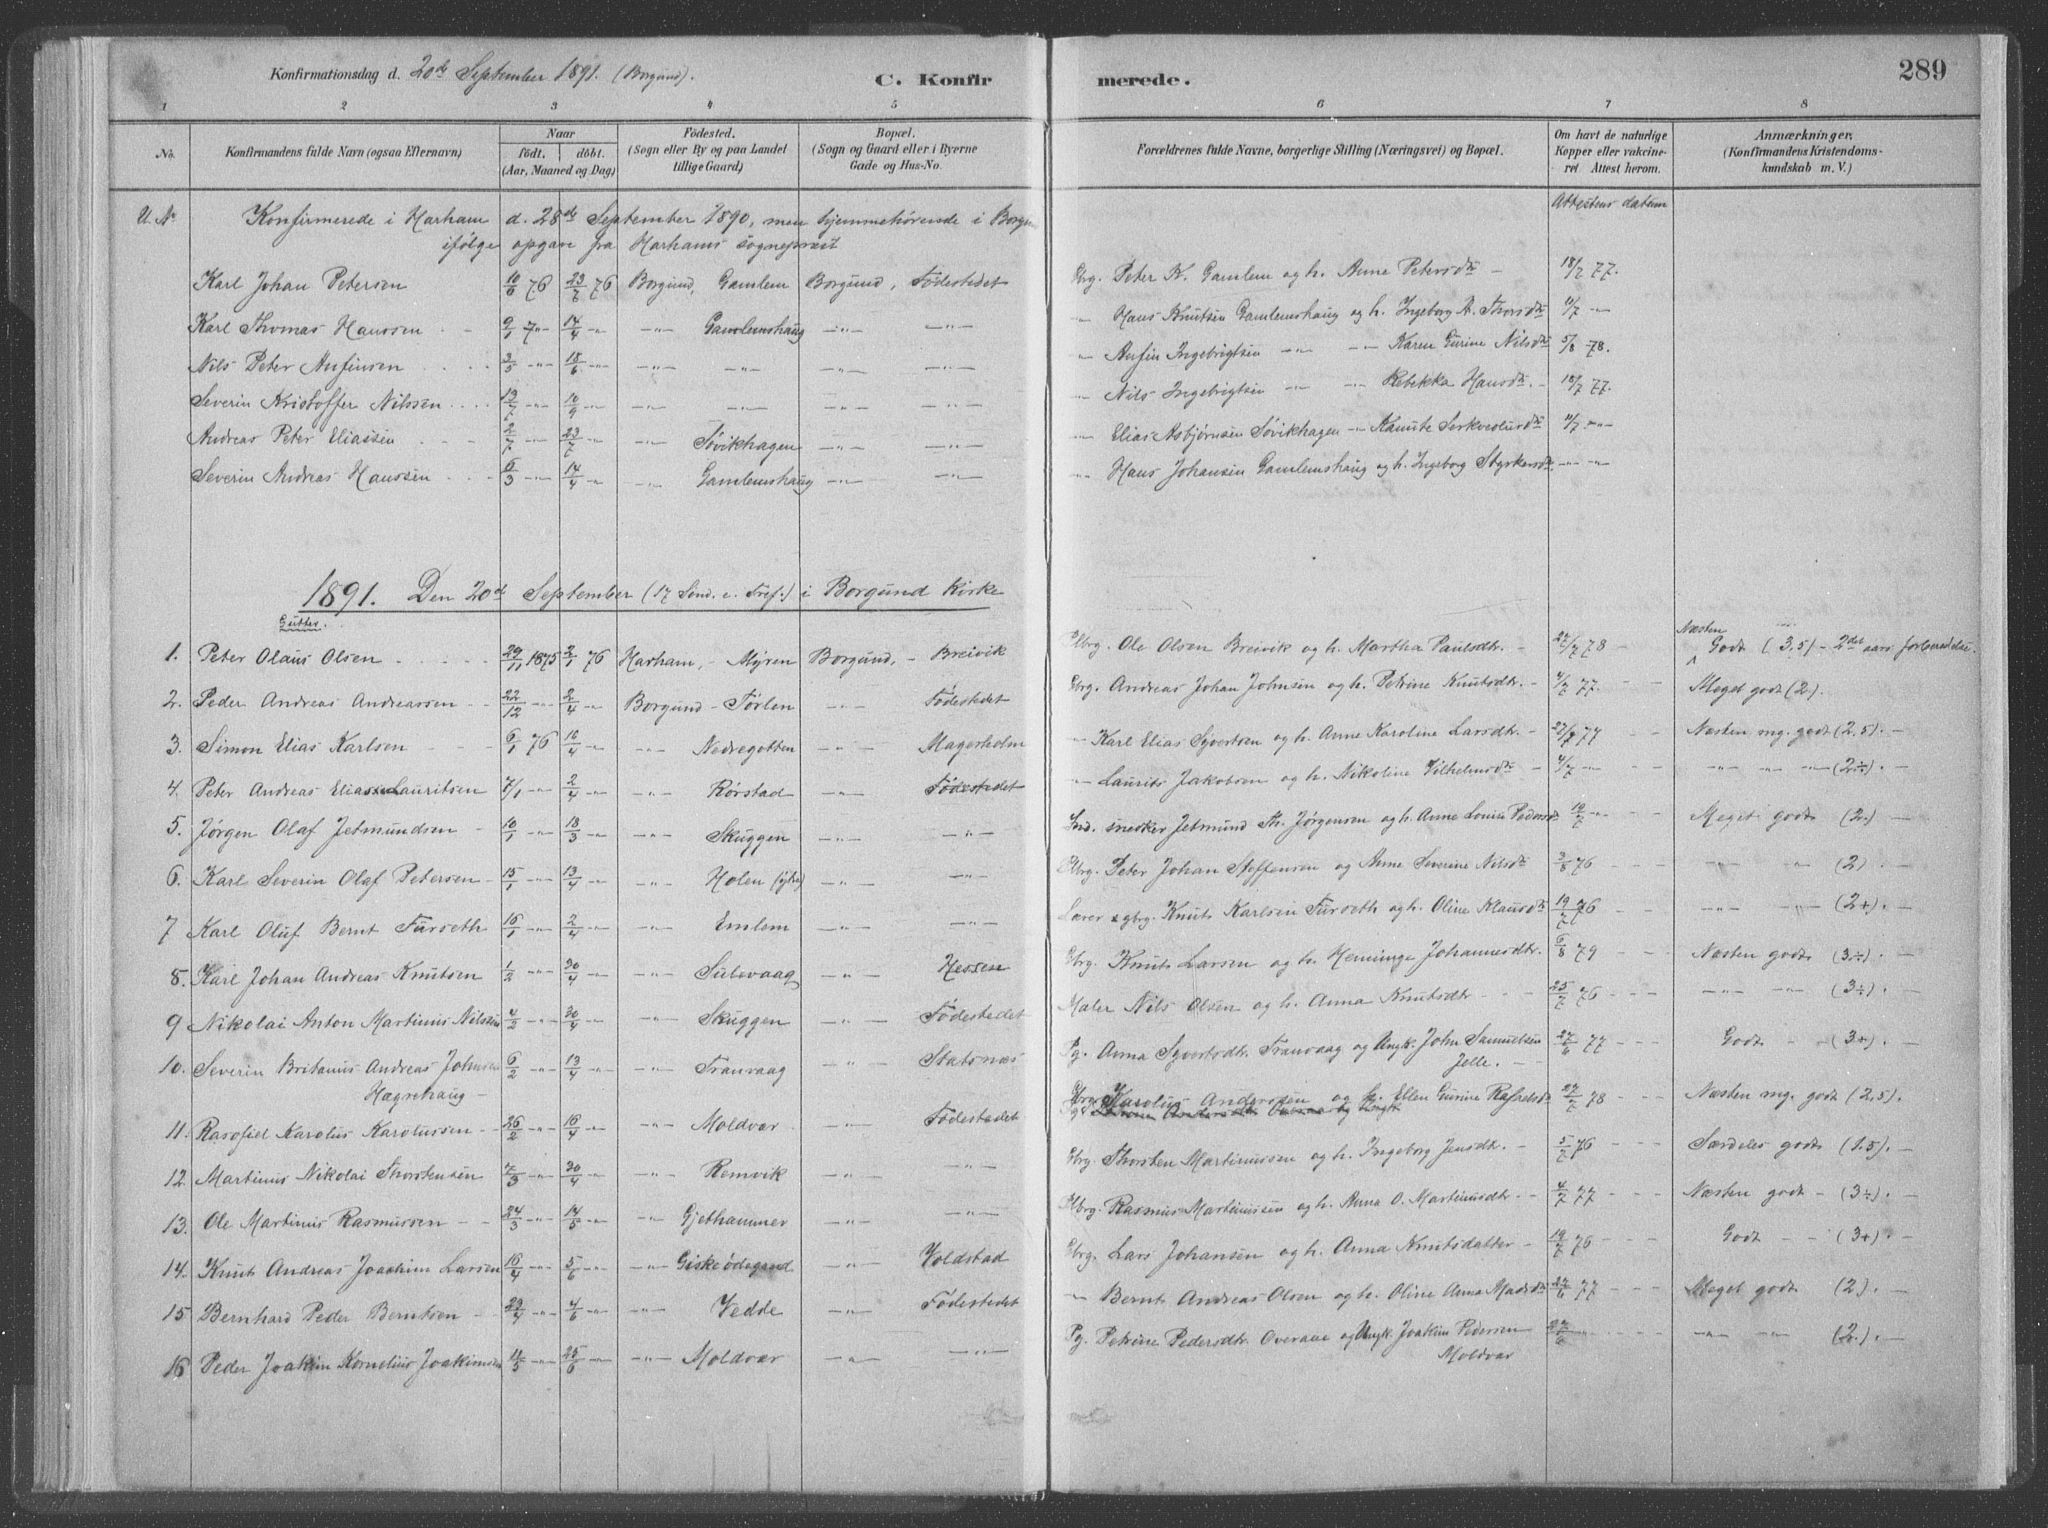 Konfirmationsdag d. 20de September 1891. (Borgund).
C. Konfir merede. 289
1 2 3 4 5 6 7 8
No. Konfirmandens fulde Navn (ogsaa Efternavn) Naar födt, döbt. (Aar, Maaned og Dag) Födested. (Sogn eller By og paa Landet tillige Gaard) Bopæl. (Sogn og Gaard eller i Byerne Gade og Hus-No. Forældrenes fulde Navne, borgerlige Stilling (Næringsvei) og Bopæl. Om havt de naturlige Kopper eller vakcineret. Attest herom. Anmærkninger, (Konfirmandens Kristendomskundskab m. V.)
U. Nr Konfirmerede i Harham d. 28de September 1890, men hjemmehörende i Borgund Attestens datum
ifölge opgave fra Harhams sogneprest
Karl Johan Petersen 10/6 76 23/7 76 Borgund, Gamlem Borgund, Födestedet Gbrg. Peter K. Gamlem og h. Anne Petersdtr 18/7 77.
Karl Thomas Hanssen 9/1 7" 17/4 " " Gamlemshaug " " " Hans Knutsen Gamlemshaug og h. Ingeborg A. Thorsdtr 11/7 "
Nils Peter Anfinsen 3/5 " 18/6 " " " " " " Anfin Ingebrigtsen " " Karen Gurine Nilsdtr 5/8 78.
Severin Kristoffer Nilssen 13/7 " 10/9 " " " " " " Nils Ingebrigtsen " " Rebekka Hansdtr. 18/7 77.
Andreas Peter Eliassen 2/7 " 23/7 " Søvikhagen " " " Elias Asbjørnsen Søvikhagen " 11/7 "
Severin Andreas Hanssen 6/3 " 14/4 " " Gamlemshaug " " " Hans Johansen Gamlemshaug og h. Ingeborg Styrkersdtr " "
1891. Den 20de September (17 Sönd. e. Tref.) i Borgund Kirke
Gutter.
1. Peter Olaus Olsen 29/11 1875 2/1 76 Harham, Myren Borgund, Breivik Gbrg. Ole Olsen Breivik og h. Martha Paulsdtr. 27/7 78 Næsten Godt (3,5) - 2det aars forberedelse.
2. Peder Andreas Andreassen 22/12 " 2/4 " Borgund Tørlen " Födestedet Gbrg. Andreas Johan Johnsen og h. Petrine Knutsdtr. 4/7 77. Meget godt (2).
3. Simon Elias Karlsen 6/1 76 16/4 " " Nedregotten " Magerholm " Karl Elias Syvertsen og h. Anne Karoline Larsdtr. 27/7 77 Næsten mg. godt (2,5).
4. Peter Andreas Elias Lauritsen 7/1 " 2/4 " " Rørstad " Födestedet " Laurits Jakobsen og h. Nikoline Vilhelmsdtr 4/7 " " " " (2÷)
5. Jørgen Olaf Jetmundsen 10/1 " 18/3 " " Skuggen " " Ind. snedker Jetmund Th. Jørgensen og h. Anne Louise Pedersdtr 19/7 " Meget godt (2.)
6. Karl Severin Olaf Petersen 15/1 " 13/4 " " Holen (ytre) " " Gbrg. Peter Johan Steffensen og Anne Severine Nilsdtr 3/8 76 " " (2)
7 Karl Oluf Bernt Furseth 16/1 " 2/4 " " Emlem " " Lærer & gbrg. Knut Karlsen Furseth og h. Oline Klausdtr 19/7 76 " " (2+)
8. Karl Johan Andreas Knutsen 1/2 " 30/4 " " Sulevaag " Hessen Gbrg. Knut Larsen og h. Henninge Johannesdtr. 6/8 79 Næsten godt (3÷)
9 Nikolai Anton Martinus Nilssen 4/2 " 30/4 " " Skuggen " Födestedet Maler Nils Olsen og h. Anna Knutsdtr 25/7 76 " " (3÷).
10. Severin Britanus Andreas Johnsen 6/2 " 13/4 " " Tranvaag " Statsnæs Pg. Anna Syvertsdtr. Tranvaag og Ungk. John Samuelsen 27/6 77 Godt (3+).
Hægrehaug Jelle.
11. Rasofiel Karolus Karolussen 26/2 " 16/4 " " Moldvær " Födestedet Gbrg. Karolus Anderssen og h. Ellen Gurine Rafaelsdtr 27/7 78 Næsten mg. godt (2,5).
12. Martinus Nikolai Thorstensen 7/3 " 30/4 " " Remvik " " Gbrg. Thorsten Martinussen og h. Ingeborg Jensdtr. 5/7 76 Særdeles godt (1.5).
13. Ole Martinus Rasmussen 24/3 " 14/5 " " Gjethammer " " Gbrg. Rasmus Martinussen og h. Anna O. Martinusdtr 4/7 77 Næsten godt (3÷).
14. Knut Andreas Joachim Larsen 16/4 " 5/6 " " Giskeödegaard " Voldstad Gbrg. Lars Johansen og h. Anna Knutsdatter 19/7 76 Godt (3+).
15 Bernhard Peder Berntsen 23/4 " 4/6 " " Vedde " Födestedet " Bernt Andreas Olsen og h. Oline Anna Madsdtr 27/6 77 Meget godt (2).
16 Peder Joakim Kornelius Joakimsen 11/5 " 25/6 " " Moldvær " " Pg. Petrine Pedersdtr. Overaae og Ungk. Joakim Pedersen 27/6 " " " (2.).
Moldvær